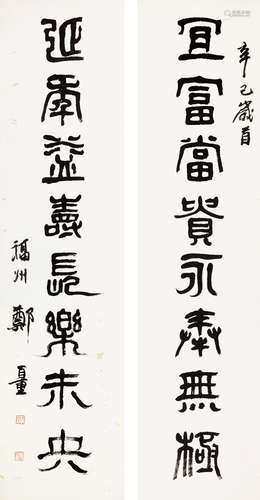 辛巳歲首
宜富當貴永奉無極
延年益壽長樂未央
福州鄭百重